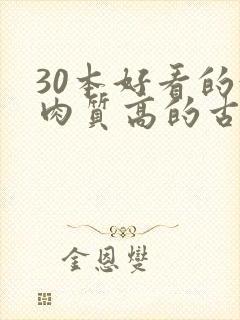 30本好看的
肉质高的古
金恩燮